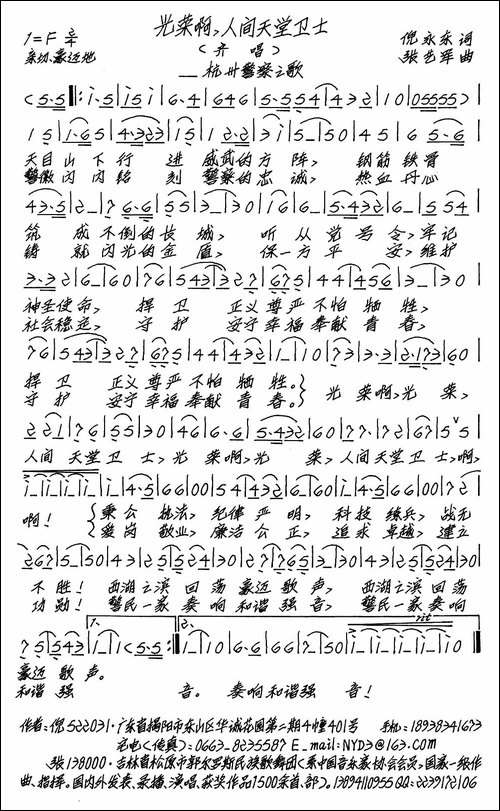 光荣啊,人间天堂卫士
1=F 2/4
(齐唱)
倪永东 词
亲切、豪迈地
——杭州警察之歌
张艺军 曲
天目山下行进威武的方阵,钢筋铁骨
警徽闪闪铭刻警察的忠诚,热血丹心
筑成不倒的长城,听从党号令,牢记
铸就闪光的金盾,保一方平安,维护
神圣使命,捍卫正义尊严不怕牺牲,
社会稳定,守护安宁幸福奉献青春,
捍卫正义尊严不怕牺牲。
守护安宁幸福奉献青春。
光荣啊,光荣,
人间天堂卫士,光荣啊,光荣,人间天堂卫士,啊,
啊!秉公执法,纪律严明,科技练兵,战无
爱岗敬业,廉洁公正,追求卓越,建立
不胜!西湖之滨回荡豪迈歌声,西湖之滨回荡
功勋!警民一家奏响和谐强音,警民一家奏响
1. 2. rit
豪迈歌声。
和谐强音。奏响和谐强音!
作者:倪522031·广东省揭阳市东山区华诚花园第二期4幢401号 手机:18938341673
宅电(传真):0663-8235587 E_mail:NYD3@163.com
张138000·吉林省松原市郭尔罗斯民族歌舞团(系中国音乐家协会会员。国家一级作
曲、指挥。国内外发表、录播、演唱、获奖作品1500余首、部)。13894110955 QQ:2239172106